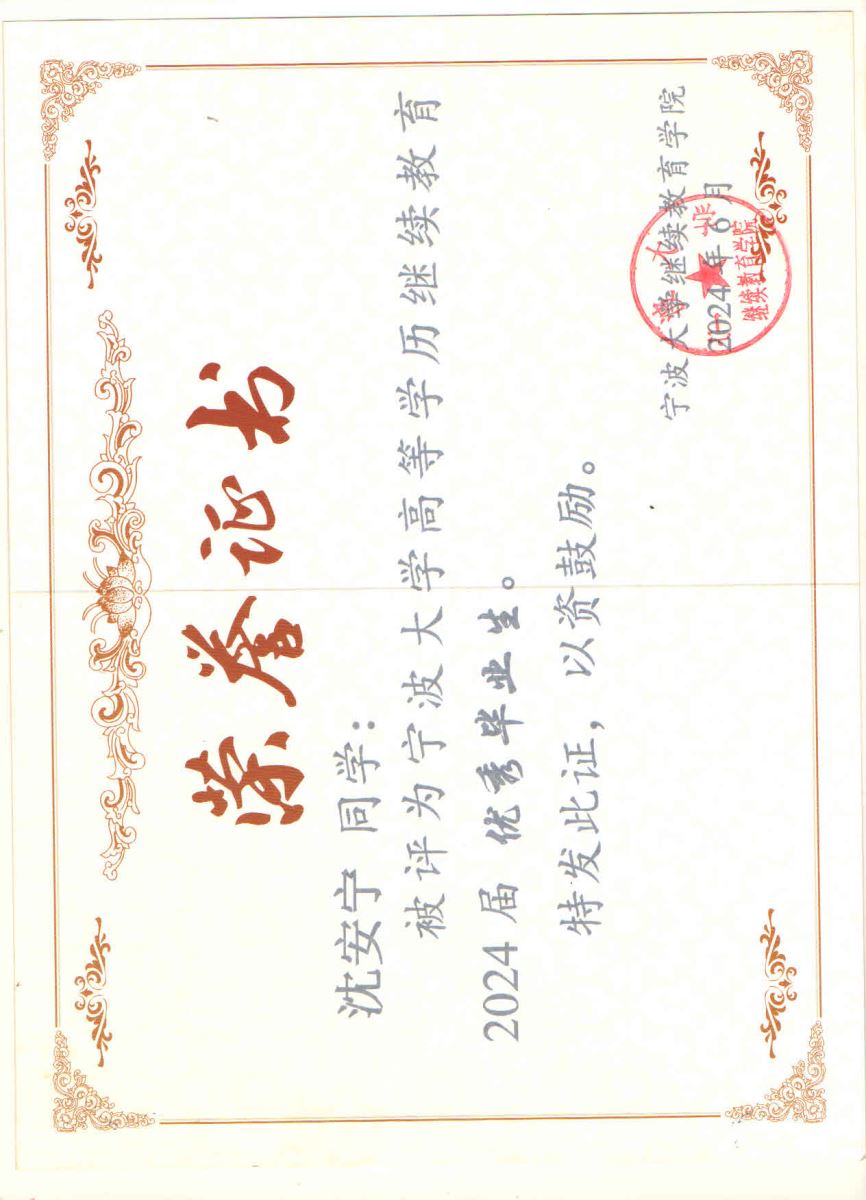 荣誉证书
沈安宁 同学：
被评为宁波大学高等学历继续教育
2024届 优秀毕业生。
特发此证，以资鼓励。
宁波大学继续教育学院
2024年6月
宁波大学
继续教育学院